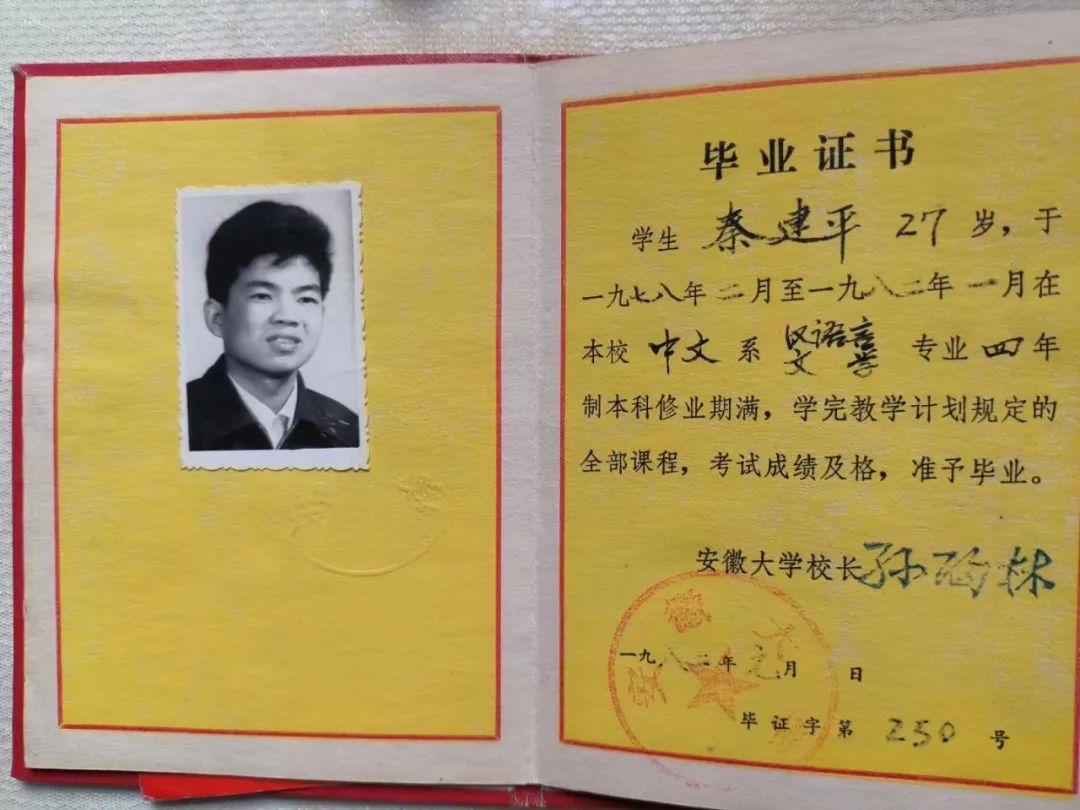 毕业证书
学生 秦建平 27 岁，于
一九七八年 二月至一九八二年 一月在
本校 中文 系 汉语言文学 专业 四 年
制本科修业期满，学完教学计划规定的
全部课程，考试成绩及格，准予毕业。
安徽大学校长 孙陶林
安徽大学
一九八二年 元月 日
毕证字第 250 号